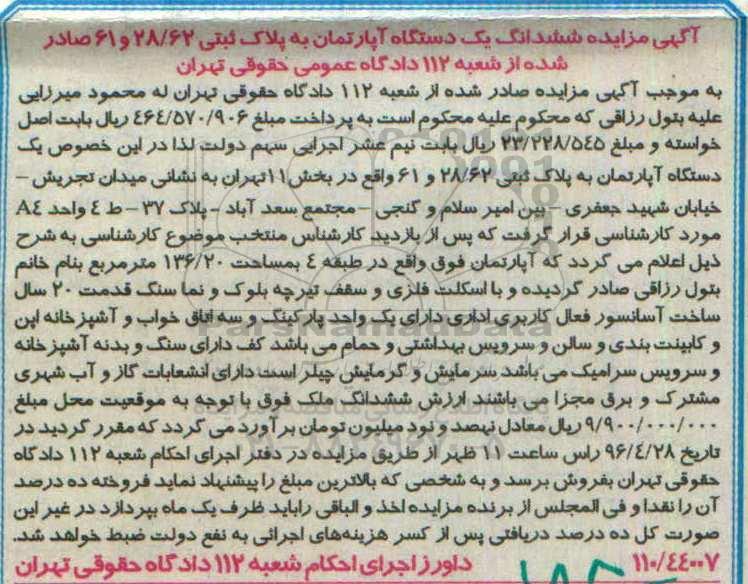 آگهی مزایده ششدانگ یک دستگاه آپارتمان به پلاک ثبتی ۲۸/۶۲ و ۶۱ صادر
شده از شعبه ۱۱۲ دادگاه عمومی حقوقی تهران
به موجب آگهی مزایده صادر شده از شعبه ۱۱۲ دادگاه حقوقی تهران له محمود میرزایی
علیه بتول رزاقی که محکوم علیه محکوم است به پرداخت مبلغ ۴۶۴/۵۷۰/۹۰۶ ریال بابت اصل
خواسته و مبلغ ۲۳/۲۲۸/۵۴۵ ریال بابت نیم عشر اجرایی سهم دولت لذا در این خصوص یک
دستگاه آپارتمان به پلاک ثبتی ۲۸/۶۲ و ۶۱ واقع در بخش ۱۱ تهران به نشانی میدان تجریش -
خیابان شهید جعفری - بین امیر سلام و گنجی - مجتمع سعد آباد - پلاک ۳۷ - ط ۴ واحد A۴
مورد کارشناسی قرار گرفت که پس از بازدید کارشناس منتخب موضوع کارشناسی به شرح
ذیل اعلام می گردد که آپارتمان فوق واقع در طبقه ۴ بمساحت ۱۳۶/۲۰ مترمربع بنام خانم
بتول رزاقی صادر گردیده و با اسکلت فلزی و سقف تیرچه بلوک و نما سنگ قدمت ۲۰ سال
ساخت آسانسور فعال کاربری اداری دارای یک واحد پارکینگ و سه اتاق خواب و آشپزخانه اپن
و کابینت بندی و سالن و سرویس بهداشتی و حمام می باشد کف دارای سنگ و بدنه آشپزخانه
و سرویس سرامیک می باشد سرمایش و گرمایش چیلر است دارای انشعابات گاز و آب شهری
مشترک و برق مجزا می باشند ارزش ششدانگ ملک فوق با توجه به موقعیت محل مبلغ
۹/۹۰۰/۰۰۰/۰۰۰ ریال معادل نهصد و نود میلیون تومان برآورد می گردد که مقرر گردید در
تاریخ ۹۶/۴/۲۸ راس ساعت ۱۱ ظهر از طریق مزایده در دفتر اجرای احکام شعبه ۱۱۲ دادگاه
حقوقی تهران بفروش برسد و به شخصی که بالاترین مبلغ را پیشنهاد نماید فروخته ده درصد
آن را نقدا و فی المجلس از برنده مزایده اخذ و الباقی را باید ظرف یک ماه بپردازد در غیر این
صورت کل ده درصد دریافتی پس از کسر هزینه‌های اجرائی به نفع دولت ضبط خواهد شد.
۱۱۰/۴۴۰۰۷ داورز اجرای احکام شعبه ۱۱۲ دادگاه حقوقی تهران
ParsNamadData